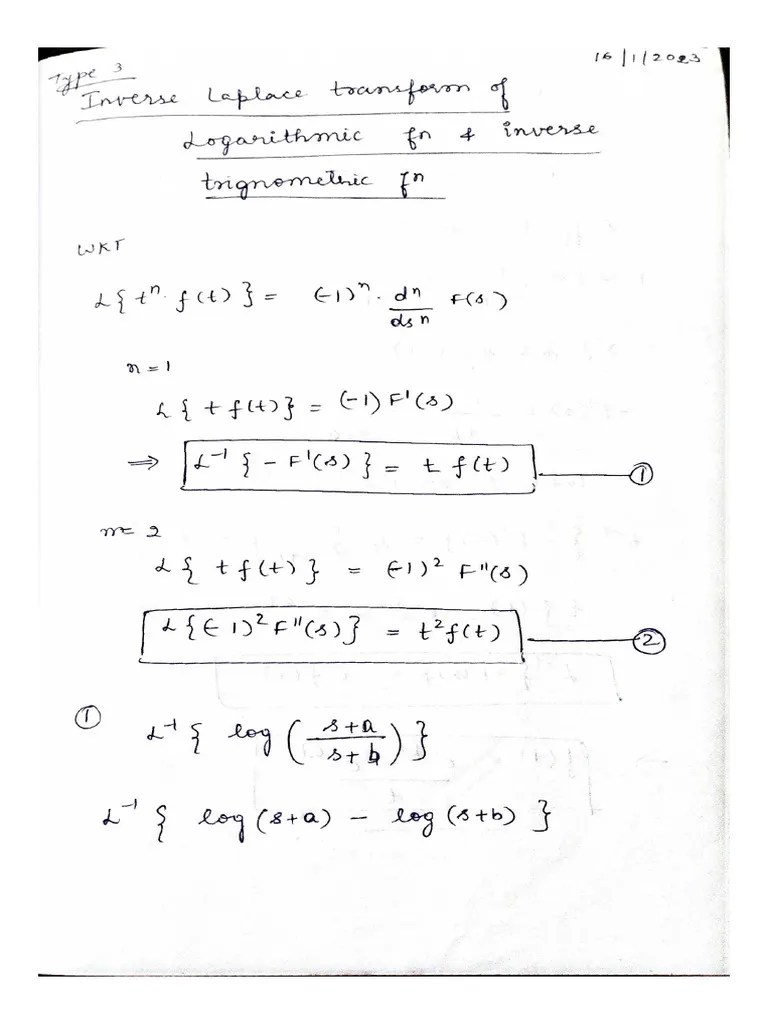 16/1/2023
Type 3
Inverse Laplace transform of
Logarithmic fn & inverse
trignometric fn
WKT
L{tⁿ. f(t)} = (-1)ⁿ. dn/dsn F(s)
n=1
L{t f(t)} = (-1) F'(s)
⇒ L⁻¹{-F'(s)} = t f(t) ①
n= 2
L{t f(t)} = (-1)² F"(s)
L{(-1)² F"(s)} = t² f(t) ②
① L⁻¹{log (s+a/s+b)}
L⁻¹{log (s+a) - log (s+b)}